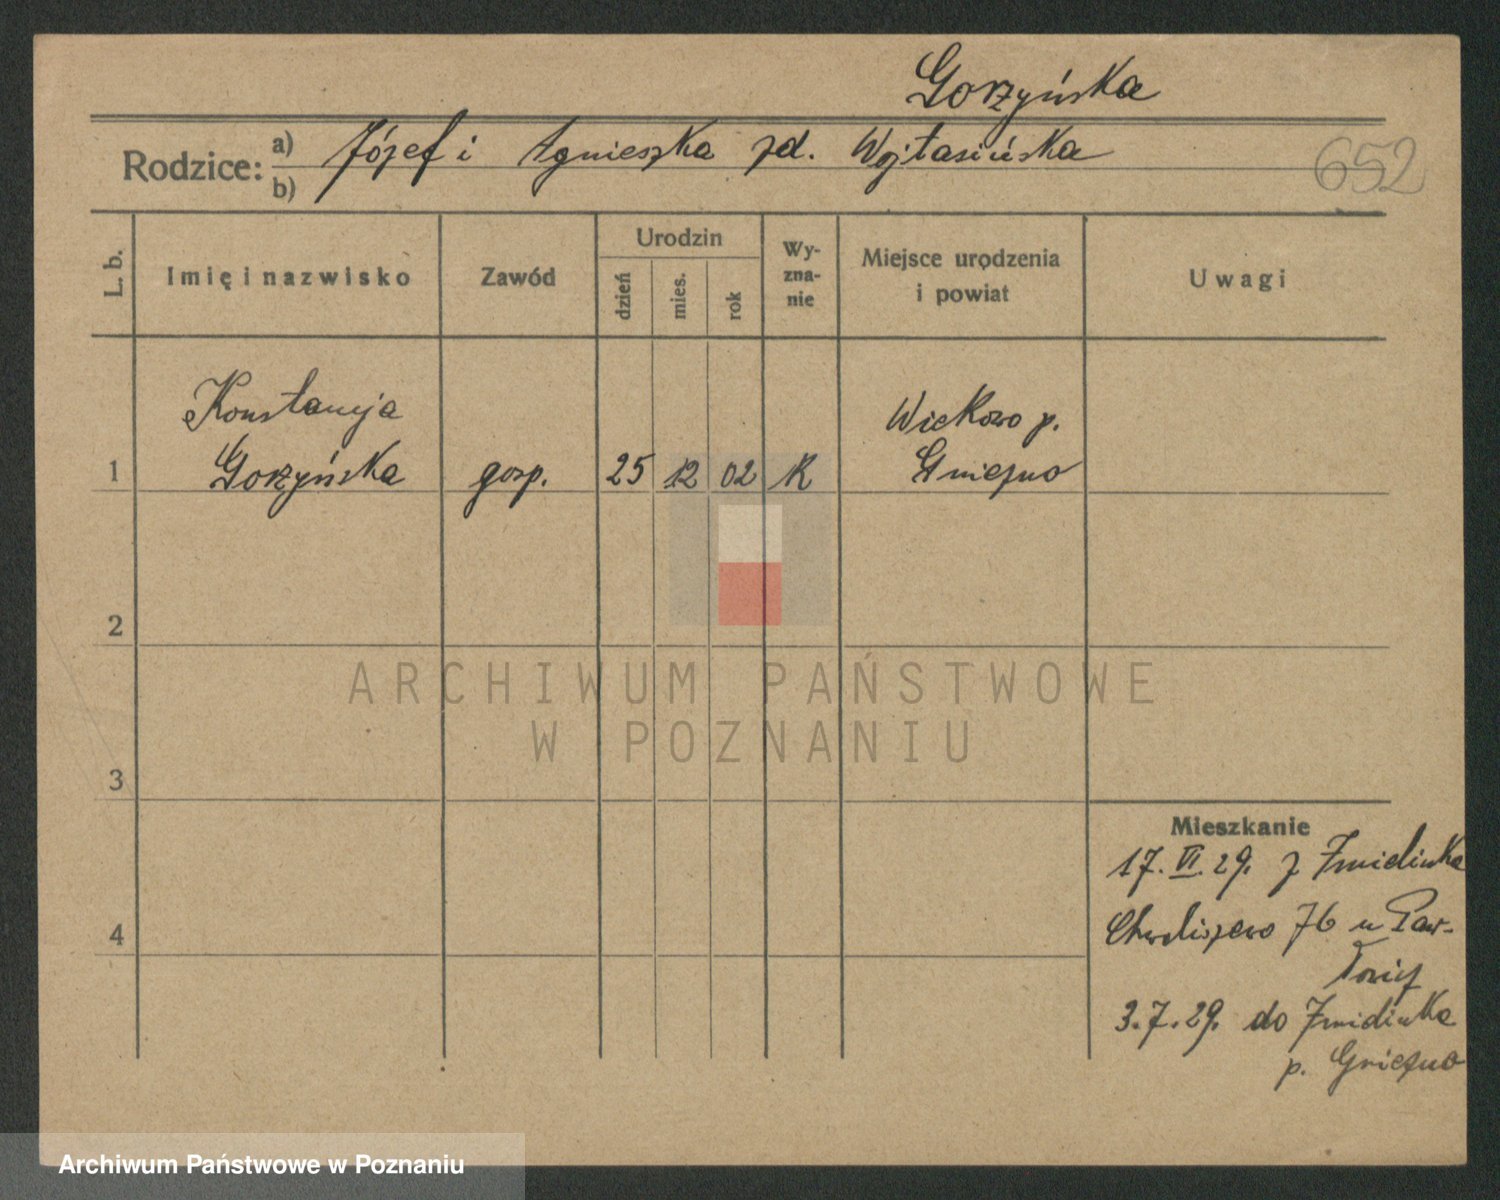 Gorzyńska
Rodzice: a) Józef i Agnieszka zd. Wojtasińska
b)
652
L. b.
Imię i nazwisko
Zawód
Urodzin
dzień
mies.
rok
Wy-
zna-
nie
Miejsce urodzenia
i powiat
Uwagi
Konstancja
Gorzyńska
gosp.
25
12
02
R
Wiekowo p.
Gniezno
1
2
3
4
ARCHIWUM PAŃSTWOWE
W POZNANIU
Mieszkanie
17. VI. 29. z
Chwaliszewo 76 u Paw-
3.7.29. do
p. Gniezno
Archiwum Państwowe w Poznaniu